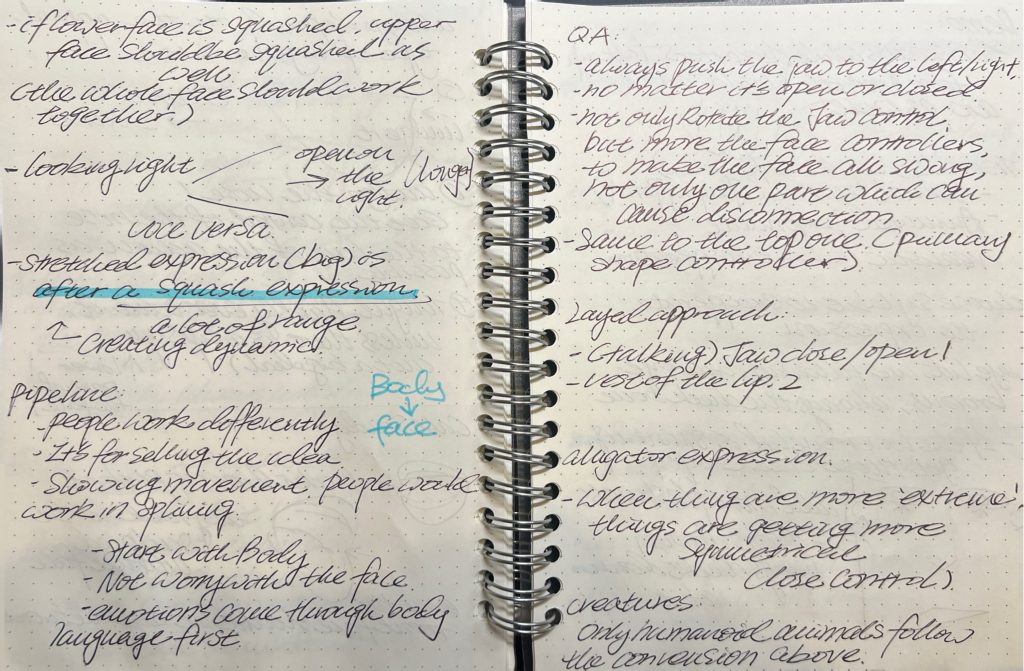 - if lowerface is squashed. upper
face should be squashed as
well.
(the whole face should work
together.)
- looking right
open on
→ the (longer)
right.
vice versa.
- stretched expression (big) is
after a squash expression.
a lot of range.
↑ creating dynamic.
Pipeline:
- people work differently
- It's for selling the idea
- Showing movement, people would
work in splining
- Start with Body
- Not worry with the face
- emotions come through body
language first
Body
↓
face
QA:
- always push the jaw to the left/right.
- no matter it's open or closed
- not only Rotate the Jaw control
but more the face controllers,
to make the face all swing,
not only one part which can
cause disconnection
- Same to the top one. (primary
shape controller)
Layed approach:
- (talking) Jaw close/open!
- rest of the lip. 2
alligator expression.
- When thing are more 'extreme',
things are getting more
Symmetrical
(lose control.)
creatures:
only humanoid animals follow
the convension above.